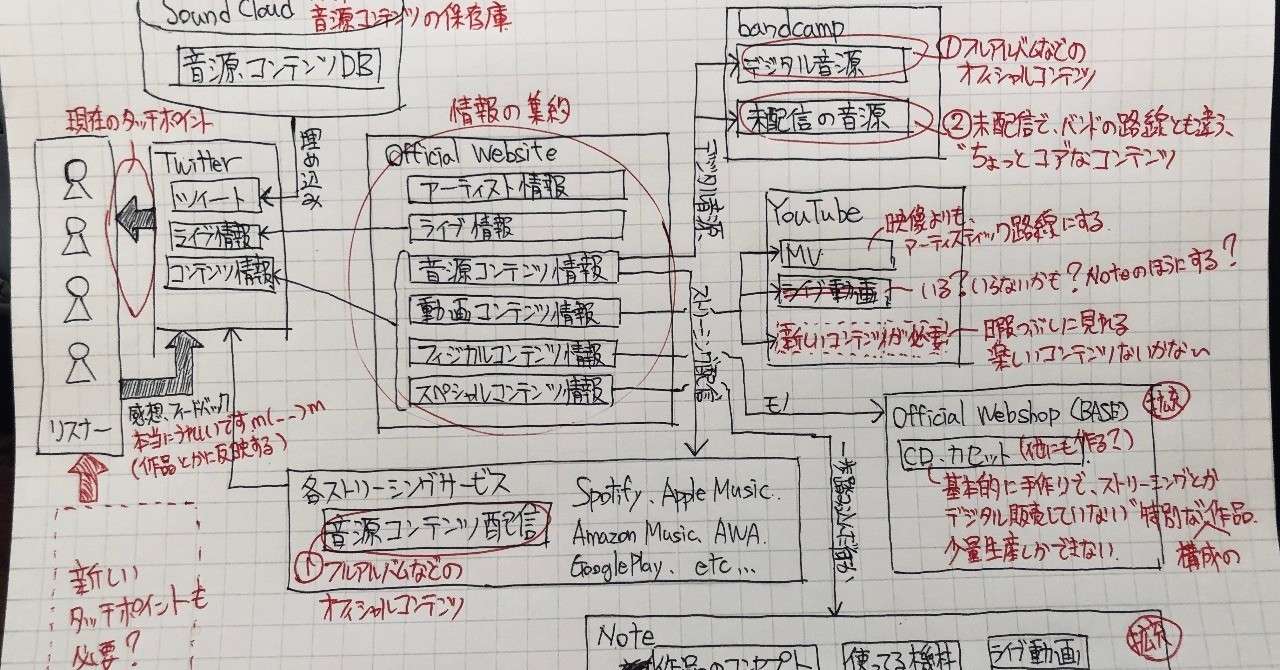 Sound Cloud
音源コンテンツの保存庫
音源コンテンツDB
現在のタッチポイント
埋め込み
Twitter
ツイート
ライブ情報
コンテンツ情報
リスナー
感想、フィードバック
本当にうれしいですm(__)m
(作品とかに反映する)
新しい
タッチポイントも
必要?
情報の集約
Official Website
アーティスト情報
ライブ情報
音源コンテンツ情報
動画コンテンツ情報
フィジカルコンテンツ情報
スペシャルコンテンツ情報
デジタル音源
ストリーミング配信
bandcamp
デジタル音源
①フルアルバムなどの
オフィシャルコンテンツ
未配信の音源
②未配信で、バンドの路線とも違う、
"ちょっとコアなコンテンツ
YouTube
MV
映像よりも、
アーティスティック路線にする
ライブ動画
いる?いらないかも?Noteのほうにする?
新しいコンテンツが必要
暇つぶしに見れる
楽しいコンテンツないかない
モノ
Official Webshop (BASE)
拡充
CD・カセット(他にも作る?)
基本的に手作りで、ストリーミングとか
デジタル販売していない"特別な"作品。
少量生産しかできない。
構成の
各ストリーミングサービス
音源コンテンツ配信
①フルアルバムなどの
オフィシャルコンテンツ
Spotify、Apple Music、
Amazon Music、AWA、
GooglePlay、etc...
一歩踏み込んだ
Note
拡充
作品のコンセプト
使ってる機材
ライブ動画